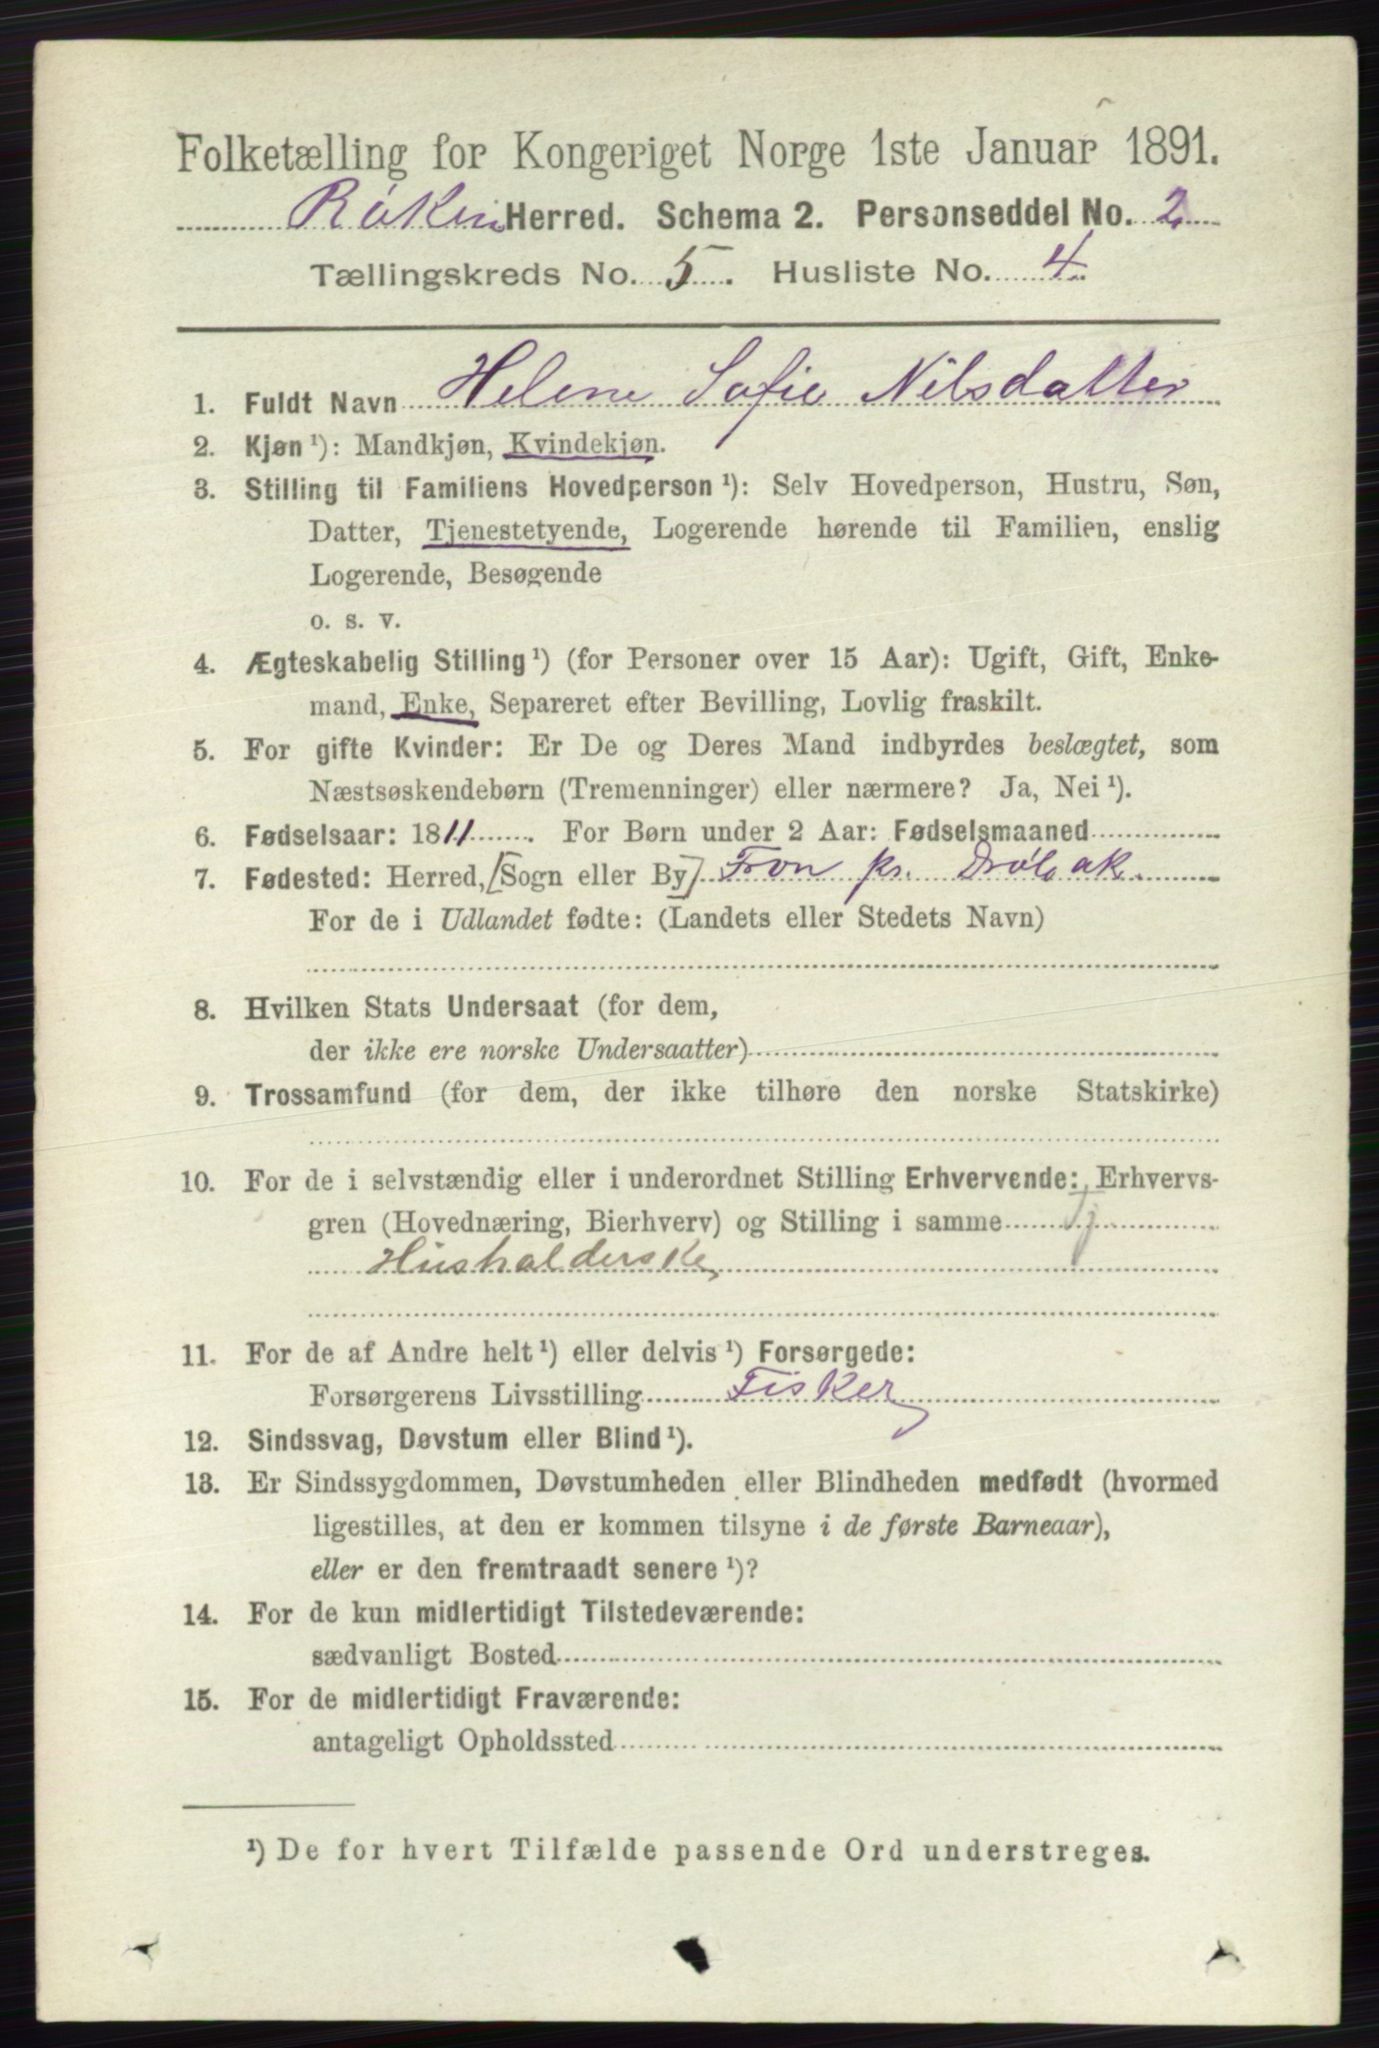 Folketælling for Kongeriget Norge 1ste Januar 1891.
Røken Herred. Schema 2. Personseddel No. 2
Tællingskreds No. 5. Husliste No. 4.
1. Fuldt Navn Helene Sofie Nilsdatter
2. Kjøn ¹): Mandkjøn, Kvindekjøn.
3. Stilling til Familiens Hovedperson ¹): Selv Hovedperson, Hustru, Søn,
Datter, Tjenestetyende, Logerende hørende til Familien, enslig
Logerende, Besøgende
o. s. v.
4. Ægteskabelig Stilling ¹) (for Personer over 15 Aar): Ugift, Gift, Enke-
mand, Enke, Separeret efter Bevilling, Lovlig fraskilt.
5. For gifte Kvinder: Er De og Deres Mand indbyrdes beslægtet, som
Næstsøskendebørn (Tremenninger) eller nærmere? Ja, Nei ¹).
6. Fødselsaar: 1811. For Børn under 2 Aar: Fødselsmaaned
7. Fødested: Herred, [Sogn eller By] Fron pr. Drøbak.
For de i Udlandet fødte: (Landets eller Stedets Navn)
8. Hvilken Stats Undersaat (for dem,
der ikke ere norske Undersaatter)
9. Trossamfund (for dem, der ikke tilhøre den norske Statskirke)
10. For de i selvstændig eller i underordnet Stilling Erhvervende: Erhvervs-
gren (Hovednæring, Bierhverv) og Stilling i samme Tj
Husholderske
11. For de af Andre helt ¹) eller delvis ¹) Forsørgede:
Forsørgerens Livsstilling Fisker
12. Sindssvag, Døvstum eller Blind ¹).
13. Er Sindssygdommen, Døvstumheden eller Blindheden medfødt (hvormed
ligestilles, at den er kommen tilsyne i de første Barneaar),
eller er den fremtraadt senere ¹)?
14. For de kun midlertidigt Tilstedeværende:
sædvanligt Bosted
15. For de midlertidigt Fraværende:
antageligt Opholdssted
¹) De for hvert Tilfælde passende Ord understreges.